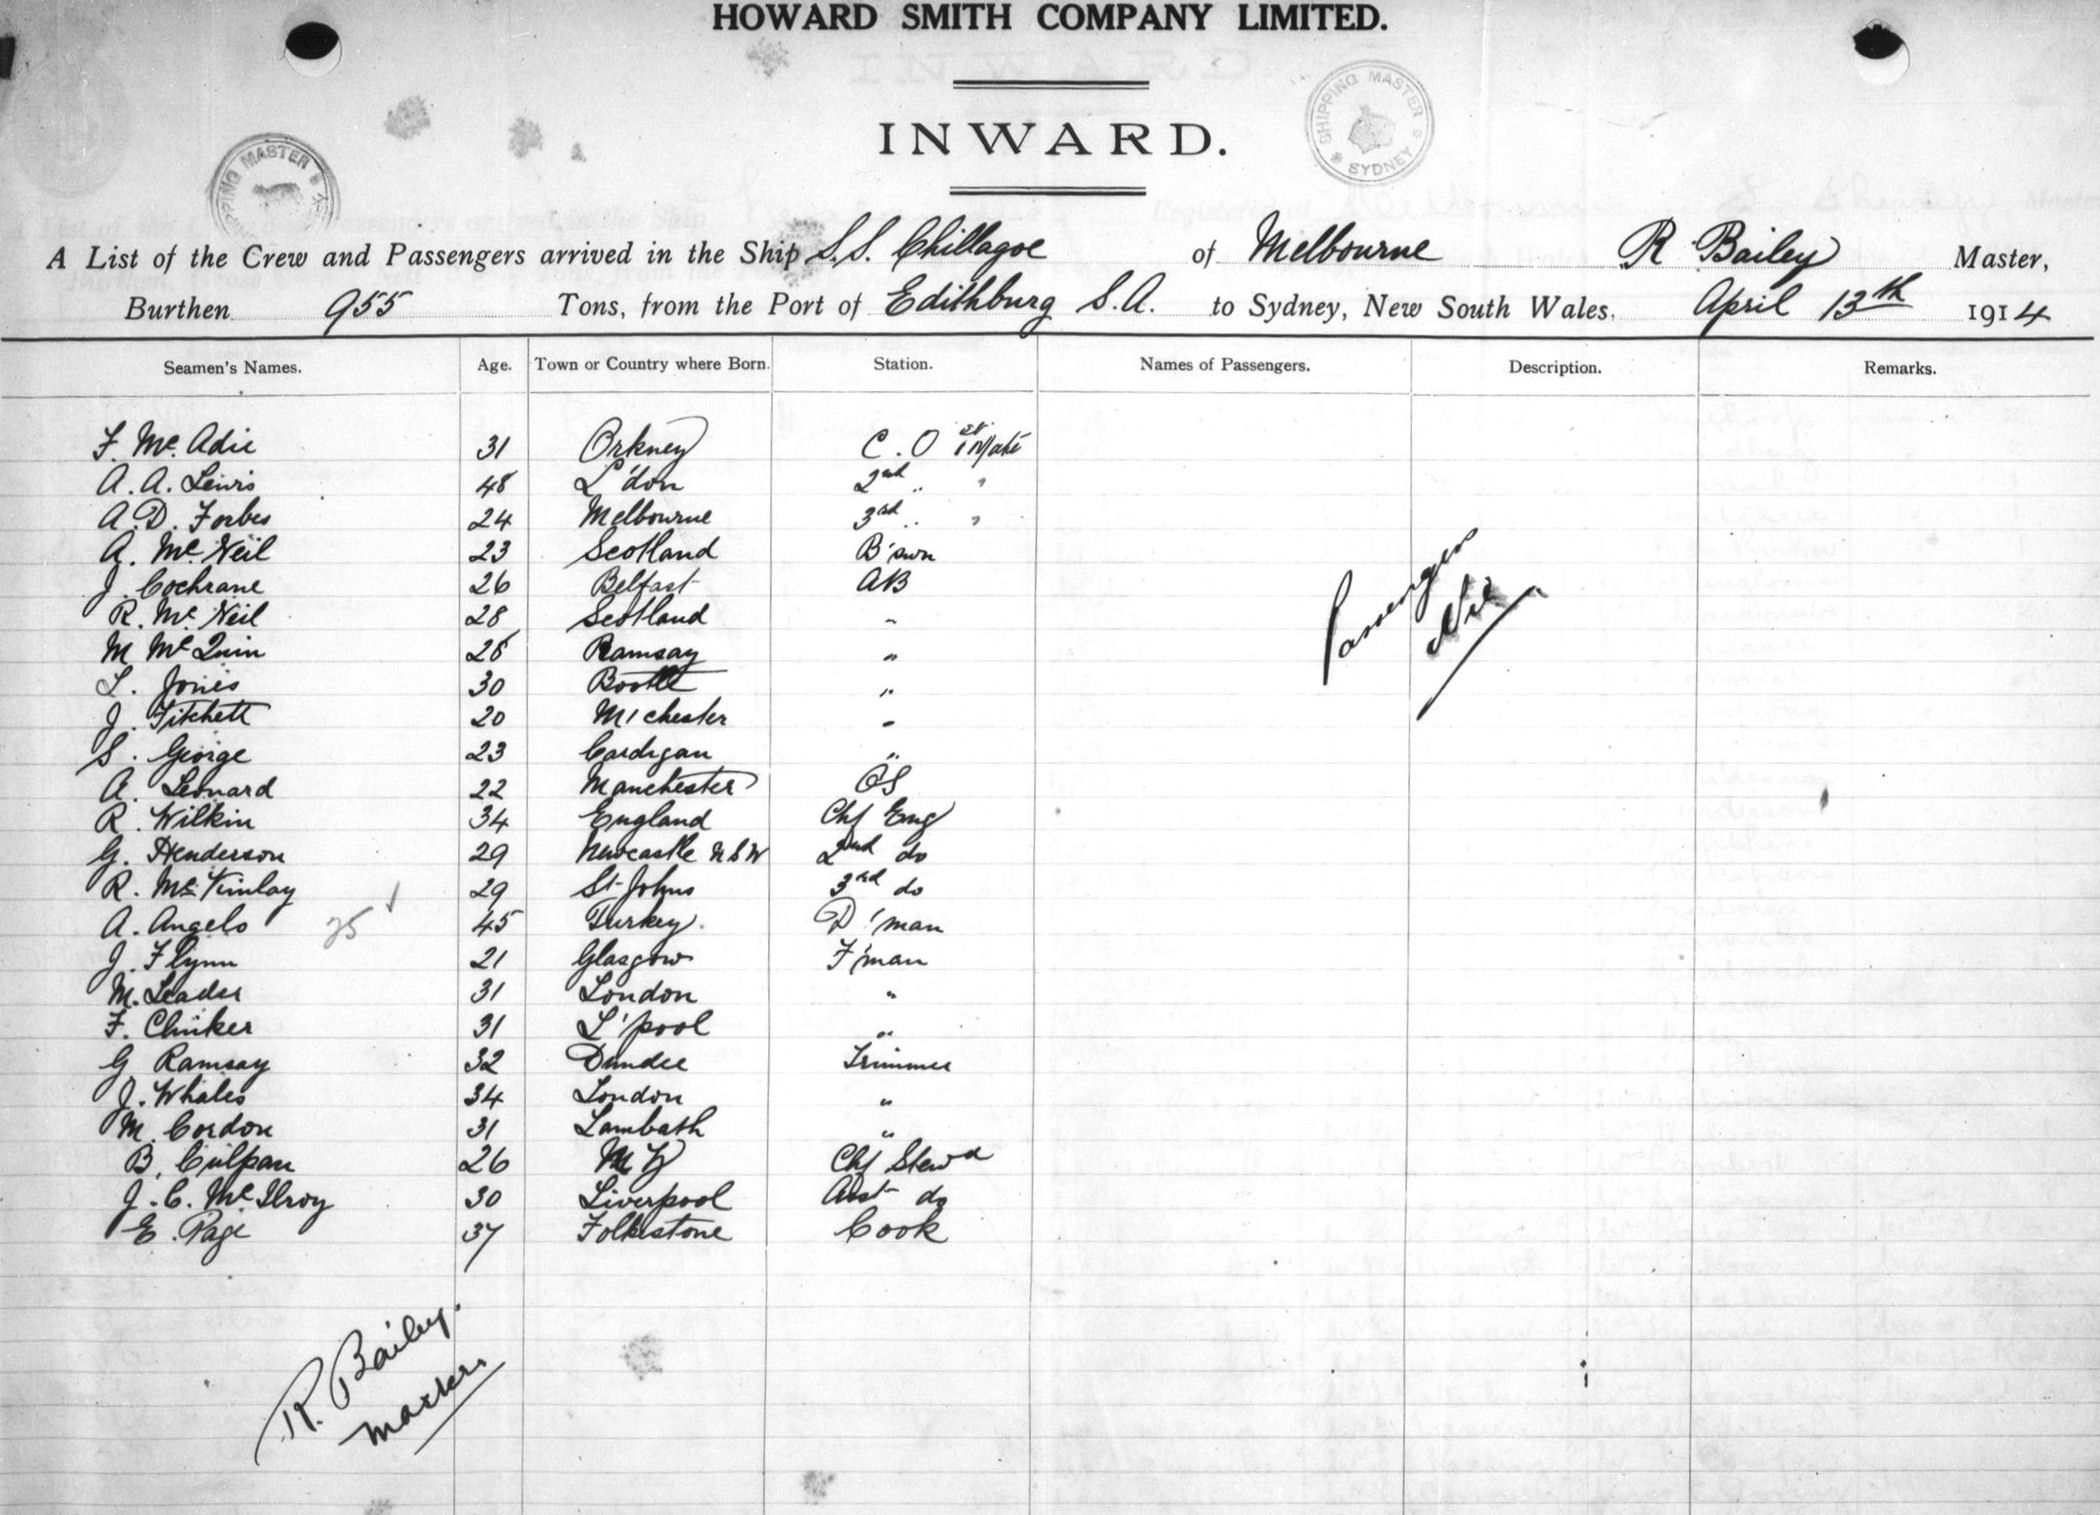 HOWARD SMITH COMPANY LIMITED.
INWARD.
SHIPPING MASTER SYDNEY
SHIPPING MASTER
A List of the Crew and Passengers arrived in the Ship S.S. Chillagoe of Melbourne R Bailey Master,
Burthen 955 Tons, from the Port of Edithburg S.A. to Sydney, New South Wales. April 13th 1914
Seamen's Names. Age. Town or Country where Born. Station. Names of Passengers. Description. Remarks.
F. Mc Adie 31 Orkney C. O 1st Mate
A. A. Lewis 48 L'don 2nd " "
A. D. Forbes 24 Melbourne 3rd " "
A. Mc Neil 23 Scotland B'swn
J. Cochrane 26 Belfast AB
R. Mc Neil 28 Scotland "
M Mc Quin 28 Ramsay "
L. Jones 30 Bootle "
J. Fitchett 20 M'chester "
S. George 23 Cardigan "
A. Leonard 22 Manchester OS
R. Wilkin 34 England Chf Eng
G. Henderson 29 Newcastle NSW 2nd do
R. Mc Kinlay 29 St Johns 3rd do
A. Angelo 45 Turkey. D'man
J. Flynn 21 Glasgow F'man
M. Leader 31 London "
F. Clinker 31 L'pool "
G Ramsay 32 Dundee Trimmer
J. Whales 34 London "
M. Cordon 31 Lambath "
B. Culpan 26 Chf Stewd
J. C. Mc Ilroy 30 Liverpool Asst do
E. Page 37 Folkestone Cook
Passengers
Nil
R. Bailey.
Master.